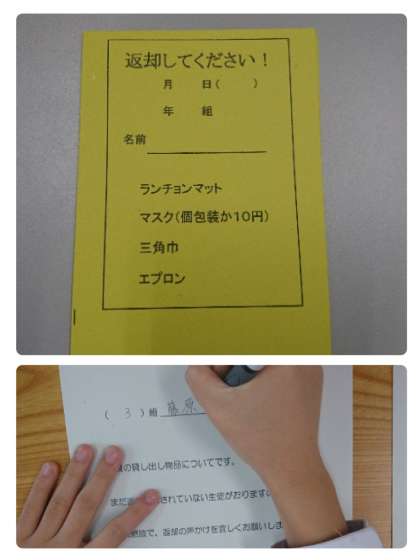 返却してください!
月 日( )
年 組
名前
ランチョンマット
マスク(個包装か10円)
三角巾
エプロン
(3)組 藤原
の貸し出し物品についてです。
まだ
されていない生徒がおりますの
で、返却の声かけを宜しくお願いしま